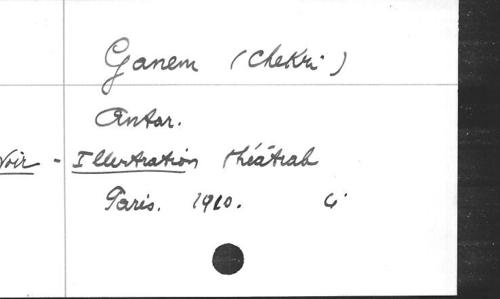 Ganem (Chekri)
Antar.
Voir - Illustration théâtrale
Paris. 1910.